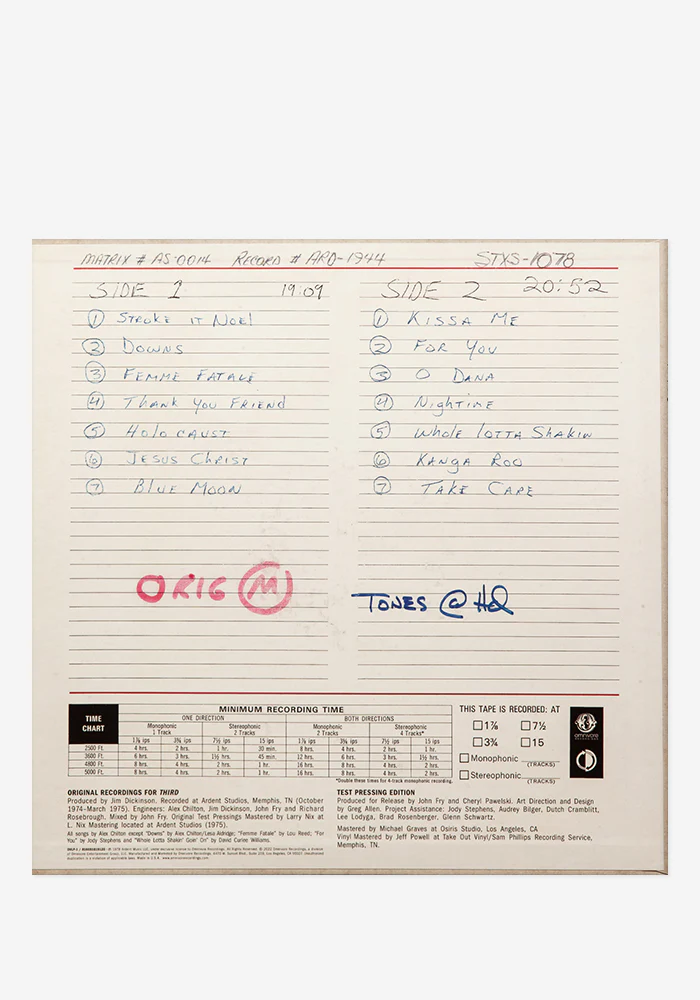 MATRIX # AS-0014 RECORD # ARD-1944 STXS-1078
SIDE 1 19:09
① STROKE IT NOEL
② DOWNS
③ FEMME FATALE
④ THANK YOU FRIEND
⑤ HOLOCAUST
⑥ JESUS CHRIST
⑦ BLUE MOON
ORIG Ⓜ
SIDE 2 20:52
① KISSA ME
② FOR YOU
③ O DANA
④ NighTIME
⑤ Whole lOTTA ShAKIN
⑥ KANGA ROO
⑦ TAKE CARE
TONES @ Hd
TIME CHART
MINIMUM RECORDING TIME
ONE DIRECTION BOTH DIRECTIONS
Monophonic 1 Track Stereophonic 2 Tracks Monophonic 2 Tracks Stereophonic 4 Tracks*
1⅞ ips 3¾ ips 7½ ips 15 ips 1⅞ ips 3¾ ips 7½ ips 15 ips
2500 Ft. 4 hrs. 2 hrs. 1 hr. 30 min. 8 hrs. 4 hrs. 2 hrs. 1 hr.
3600 Ft. 6 hrs. 3 hrs. 1½ hrs. 45 min. 12 hrs. 6 hrs. 3 hrs. 1½ hrs.
4800 Ft. 8 hrs. 4 hrs. 2 hrs. 1 hr. 16 hrs. 8 hrs. 4 hrs. 2 hrs.
5000 Ft. 8 hrs. 4 hrs. 2 hrs. 1 hr. 16 hrs. 8 hrs. 4 hrs. 2 hrs.
*Double these times for 4-track monophonic recording.
THIS TAPE IS RECORDED: AT
1⅞ 7½
3¾ 15
Monophonic (TRACKS)
Stereophonic (TRACKS)
omnivore
ORIGINAL RECORDINGS FOR THIRD
Produced by Jim Dickinson. Recorded at Ardent Studios, Memphis, TN (October
1974-March 1975). Engineers: Alex Chilton, Jim Dickinson, John Fry and Richard
Rosebrough. Mixed by John Fry. Original Test Pressings Mastered by Larry Nix at
L. Nix Mastering located at Ardent Studios (1975).
All songs by Alex Chilton except "Downs" by Alex Chilton/Lesa Aldridge; "Femme Fatale" by Lou Reed; "For
You" by Jody Stephens and "Whole Lotta Shakin' Goin' On" by David Curlee Williams.
TEST PRESSING EDITION
Produced for Release by John Fry and Cheryl Pawelski. Art Direction and Design
by Greg Allen. Project Assistance: Jody Stephens, Audrey Bilger, Dutch Cramblitt,
Lee Lodyga, Brad Rosenberger, Glenn Schwartz.
Mastered by Michael Graves at Osiris Studio, Los Angeles, CA
Vinyl Mastered by Jeff Powell at Take Out Vinyl/Sam Phillips Recording Service,
Memphis, TN.